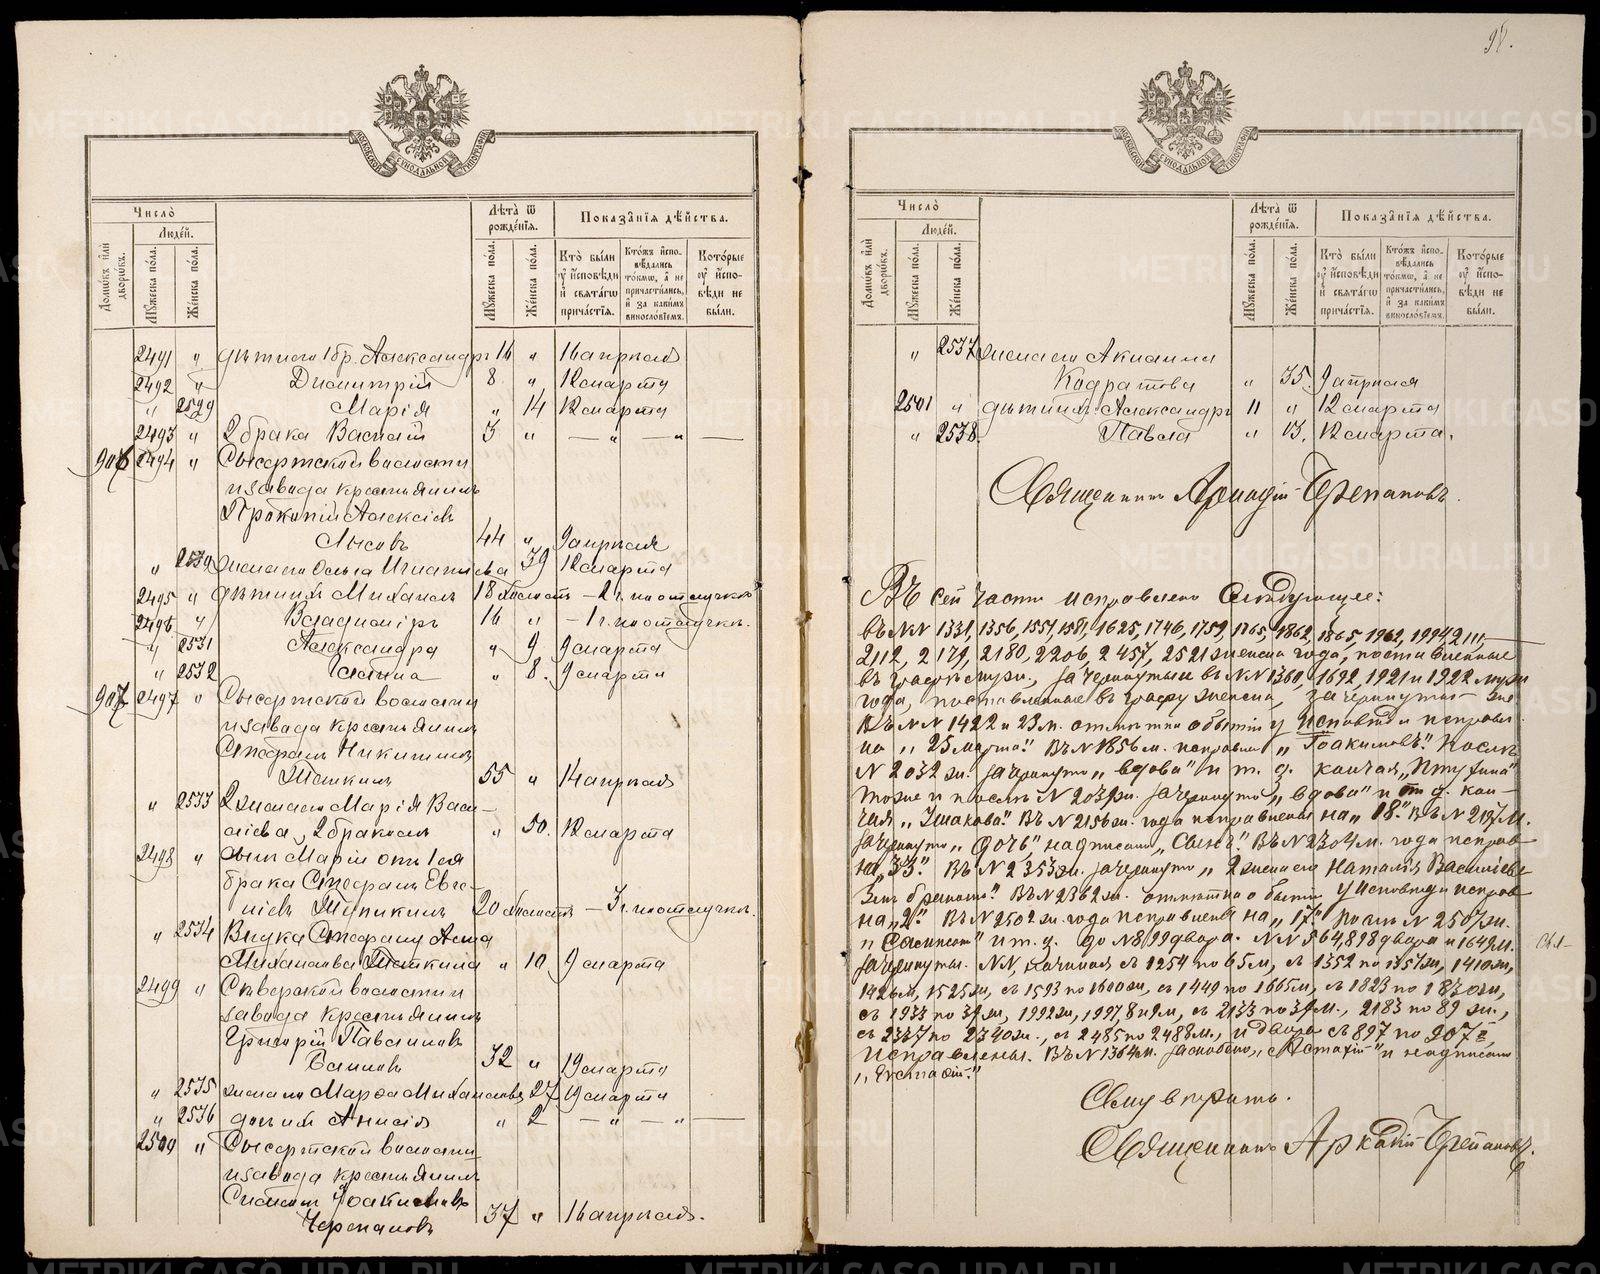 98.
МОСКОВСКОЙ СУНОДАЛЬНОЙ ТИПОГРАФІИ
Число̀
Людей.
Домѡвъ и҆лѝ дворѡвъ.
Мꙋжеска по́ла.
Же́нска по́ла.
Лѣта̀ ѿ рожде́нїѧ.
Мꙋжеска по́ла.
Же́нска по́ла.
Показа̑нїѧ дѣ́йства.
Кто̀ бы́ли ᲂу҆ и҆сповѣ́ди и҆ свѧта́гѡ прича́стїѧ.
Кто́жъ и҆спо-вѣ́дались то́кмѡ, а҆ не причасти́лись, и҆ за каки́мъ виносло́вїемъ.
Кото́рые ᲂу҆ и҆спо-вѣ́ди не бы́ли.
2491 " дѣти его 1 бр. Александръ 16 " 16 апрѣля
2492 " Димитрій 8 " 12 марта
" 2529 Марія " 14 12 марта
2493 " 2 брака Василій 3 " — " — " —
906 2494 " Сысертской волости
и завода крестьянинъ
Прокопій Алексіевъ
Лысовъ 44 " 9 апрѣля
" 2530 жена его Ольга Игнатьева 39 12 марта
2495 " дѣти ихъ Михаилъ 18 холостъ — 2 г. по отлучкѣ
2496 " Владиміръ 16 " — 1 г. по отлучкѣ.
" 2531 Александра " 9 9 марта
" 2532 " 8. 9 марта
907 2497 " Сысертской волости
и завода крестьянинъ
Стефанъ Никитинъ
Шаткинъ 55 " 14 апрѣля
" 2533 2 жена его Марія Васи-
ліева, 2 бракомъ " 50. 12 марта
2498 " сынъ Маріи отъ 1-го
брака Стефанъ Евге-
ніевъ 20 холостъ — 3 г. по отлучкѣ.
" 2534 Внука Стефану Анна
Михаилова Шаткина " 10 9 марта
2499 " Сѣверской волости и
завода крестьянинъ
Григорій Павлиновъ
32 " 19 марта
" 2535 жена его Марѳа Михаилова 27 19 марта
" 2536 дочь ихъ Анисія " 2 — " — " —
2500 " Сысертской волости
и завода крестьянинъ
Іоакимовъ
Черепановъ 37 " 16 апрѣля.
Число̀
Людей.
Домѡвъ и҆лѝ дворѡвъ.
Мꙋжеска по́ла.
Же́нска по́ла.
Лѣта̀ ѿ рожде́нїѧ.
Мꙋжеска по́ла.
Же́нска по́ла.
Показа̑нїѧ дѣ́йства.
Кто̀ бы́ли ᲂу҆ и҆сповѣ́ди и҆ свѧта́гѡ прича́стїѧ.
Кто́жъ и҆спо-вѣ́дались то́кмѡ, а҆ не причасти́лись, и҆ за каки́мъ виносло́вїемъ.
Кото́рые ᲂу҆ и҆спо-вѣ́ди не бы́ли.
" 2537 жена его Акилина
Кодратова " 35. 9 апрѣля
2501 " дѣти ихъ Александръ 11 " 12 марта
" 2538. Павла " 13. 12 марта.
Священникъ Аркадій Черепановъ.
Въ сей части исправлено слѣдующее:
въ №№ 1331, 1356, 1551, 1581, 1625, 1746, 1759, 1765, 1862, 1865, 1962, 1994, 2111,
2112, 2179, 2180, 2206, 2457, 2521 женска года, поставленные
въ графѣ муж., зачеркнуты и въ №№ 1360, 1692, 1921 и 1922 муж.
года, поставленные въ графу женска, зачеркнуты же.
Въ №№ 1422 и 23 м. отмѣтки о бытіи у исповѣди исправле-
но „25 марта". Въ № 1856 м. исправлено „Іоакимовъ". Послѣ
№ 2032 ж. зачеркнуто „вдова" и т. д. кончая
тоже и послѣ № 2039 ж. зачеркнуто „вдова" и т. д. кон-
чая „Ушакова". Въ № 2156 м. года исправлены на „18". Въ № 2137 м.
зачеркнуто „дочь" надписано „сынъ". Въ № 2304 м. года исправ-
на „33". Въ № 2353 ж. зачеркнуто „2 жена его Наталія Васильева
3 мъ бракомъ". Въ № 2362 ж. отмѣтка о бытіи у исповѣди исправ-
на „2". Въ № 2502 ж. года исправлены на „17". Послѣ № 2507 ж.
и т. д. до № 899 двора. №№ 564, 898 двора и 1649 м.
зачеркнуты. №№, начиная съ 1254 по 65 м, съ 1352 по 1357 ж, 1410 ж,
1426 м, 1525 ж, съ 1593 по 1600 ж, съ 1449 по 1665 м, съ 1823 по 1830 ж,
съ 1933 по 39 ж, 1992 ж, 1997, 8 и 9 м, съ 2133 по 39 м., 2183 по 89 ж.,
съ 2337 по 2340 ж., съ 2485 по 2488 м., и двора съ 897 по 907-й,
исправлены. Въ № 1364 м. заскоблено „Астафій" и надписано
„Евстафій."
Сему вѣрить.
Священникъ Аркадій Черепановъ.
METRIKI.GASO-URAL.RU